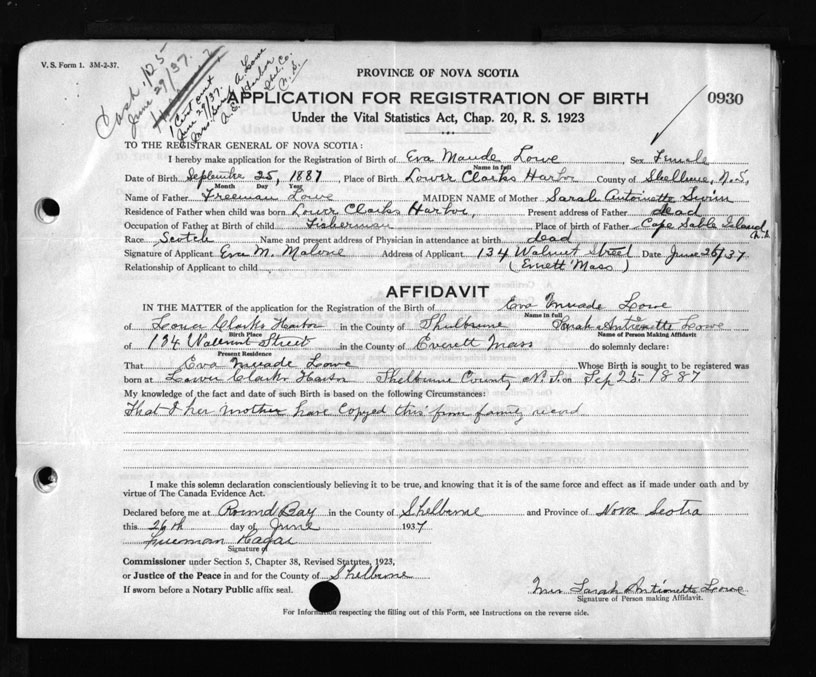 V. S. Form 1. 3M-2-37.
Cash 1.25
June 29/37.
1 Cert out
June 29/37.
A. Lowe
Harbor
Shel. Co.
N. S.
PROVINCE OF NOVA SCOTIA
APPLICATION FOR REGISTRATION OF BIRTH
0930
Under the Vital Statistics Act, Chap. 20, R. S. 1923
TO THE REGISTRAR GENERAL OF NOVA SCOTIA:
I hereby make application for the Registration of Birth of Eva Maude Lowe Sex Female
Name in full
Date of Birth September 25, 1887 Place of Birth Lower Clarks Harbor County of Shelburne, N.S.
Month Day Year
Name of Father Freeman Lowe MAIDEN NAME of Mother Sarah Antoinette Swim
Residence of Father when child was born Lower Clarks Harbor, Present address of Father dead
Occupation of Father at Birth of child Fisherman Place of birth of Father Cape Sable Island N.S.
Race Scotch Name and present address of Physician in attendance at birth dead
Signature of Applicant Eva M. Malone Address of Applicant 134 Walnut Street Date June 26/37
Relationship of Applicant to child (Everett Mass)
AFFIDAVIT
IN THE MATTER of the application for the Registration of the Birth of Eva Meade Lowe
Name in full
of Lower Clarks Harbor in the County of Shelburne Sarah Antionette Lowe
Birth Place Name of Person Making Affidavit
of 134 Wallnut Street in the County of Everett Mass do solemnly declare:
Present Residence
That Eva Meade Lowe Whose Birth is sought to be registered was
born at Lower Clarks Harbor Shelburne County N.S. on Sep 25. 1887
My knowledge of the fact and date of such Birth is based on the following Circumstances:
That I her mother have Copyed this from family record
I make this solemn declaration conscientiously believing it to be true, and knowing that it is of the same force and effect as if made under oath and by
virtue of The Canada Evidence Act.
Declared before me at Round Bay in the County of Shelburne and Province of Nova Scotia
this 26th day of June 1937
Freeman Hagar
Signature of
Commissioner under Section 5, Chapter 38, Revised Statutes, 1923,
or Justice of the Peace in and for the County of Shelburne
If sworn before a Notary Public affix seal.
Mrs Sarah Antionette Lowe
Signature of Person making Affidavit.
For Information respecting the filling out of this Form, see Instructions on the reverse side.